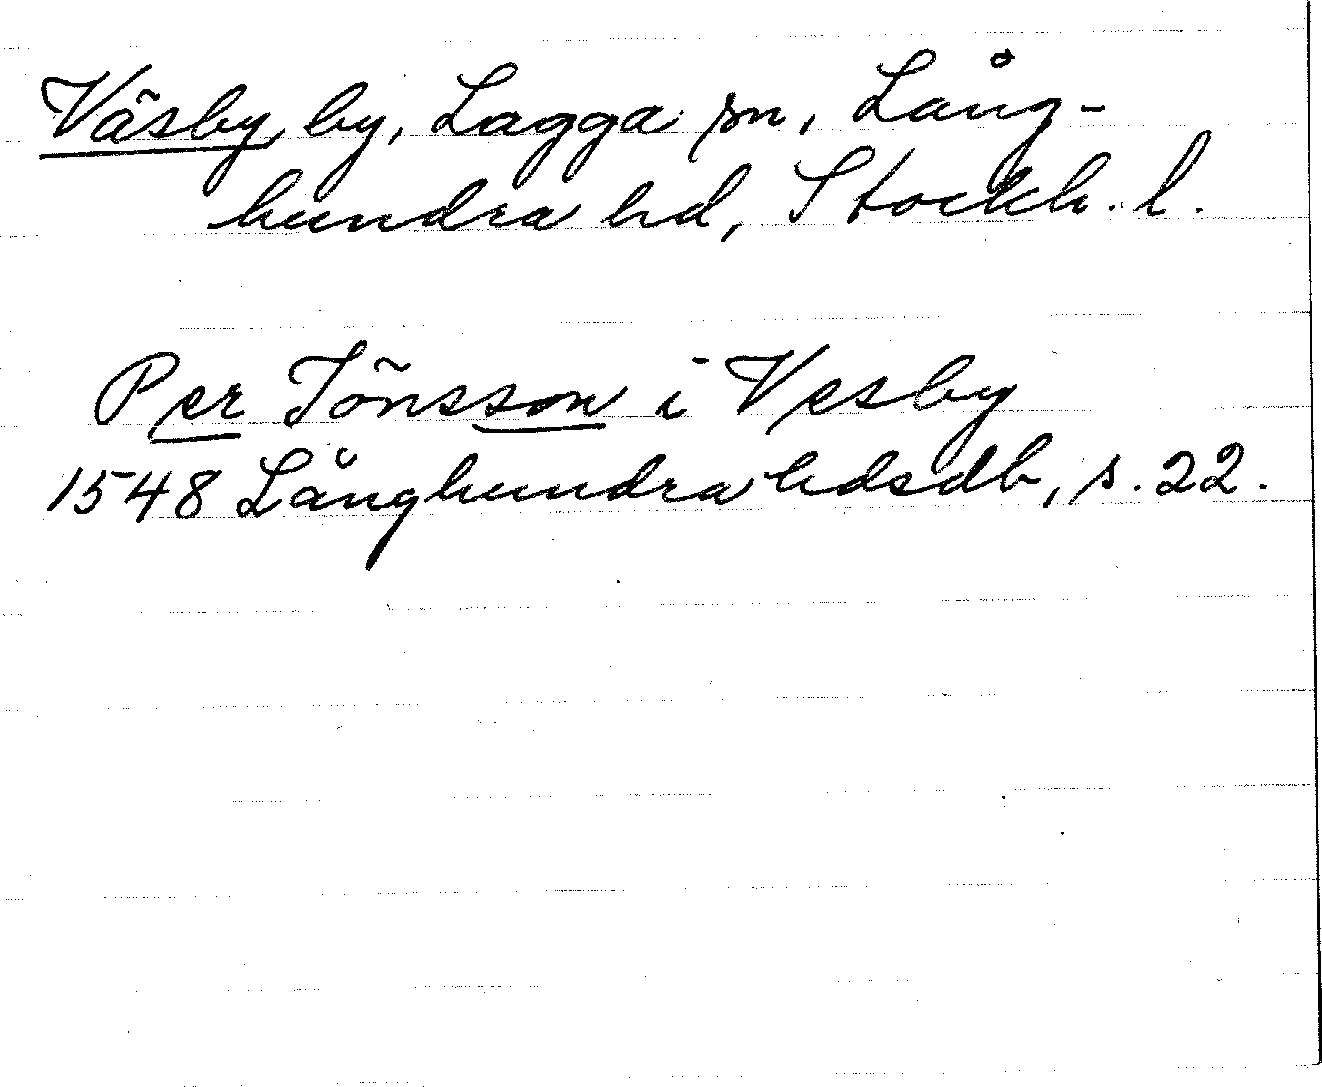 Väsby by, Lagga sn, Lång-
hundra hd, Stockh. l.
Per Jönsson i Vesby
1548 Långhundra hdsdb, s. 22.